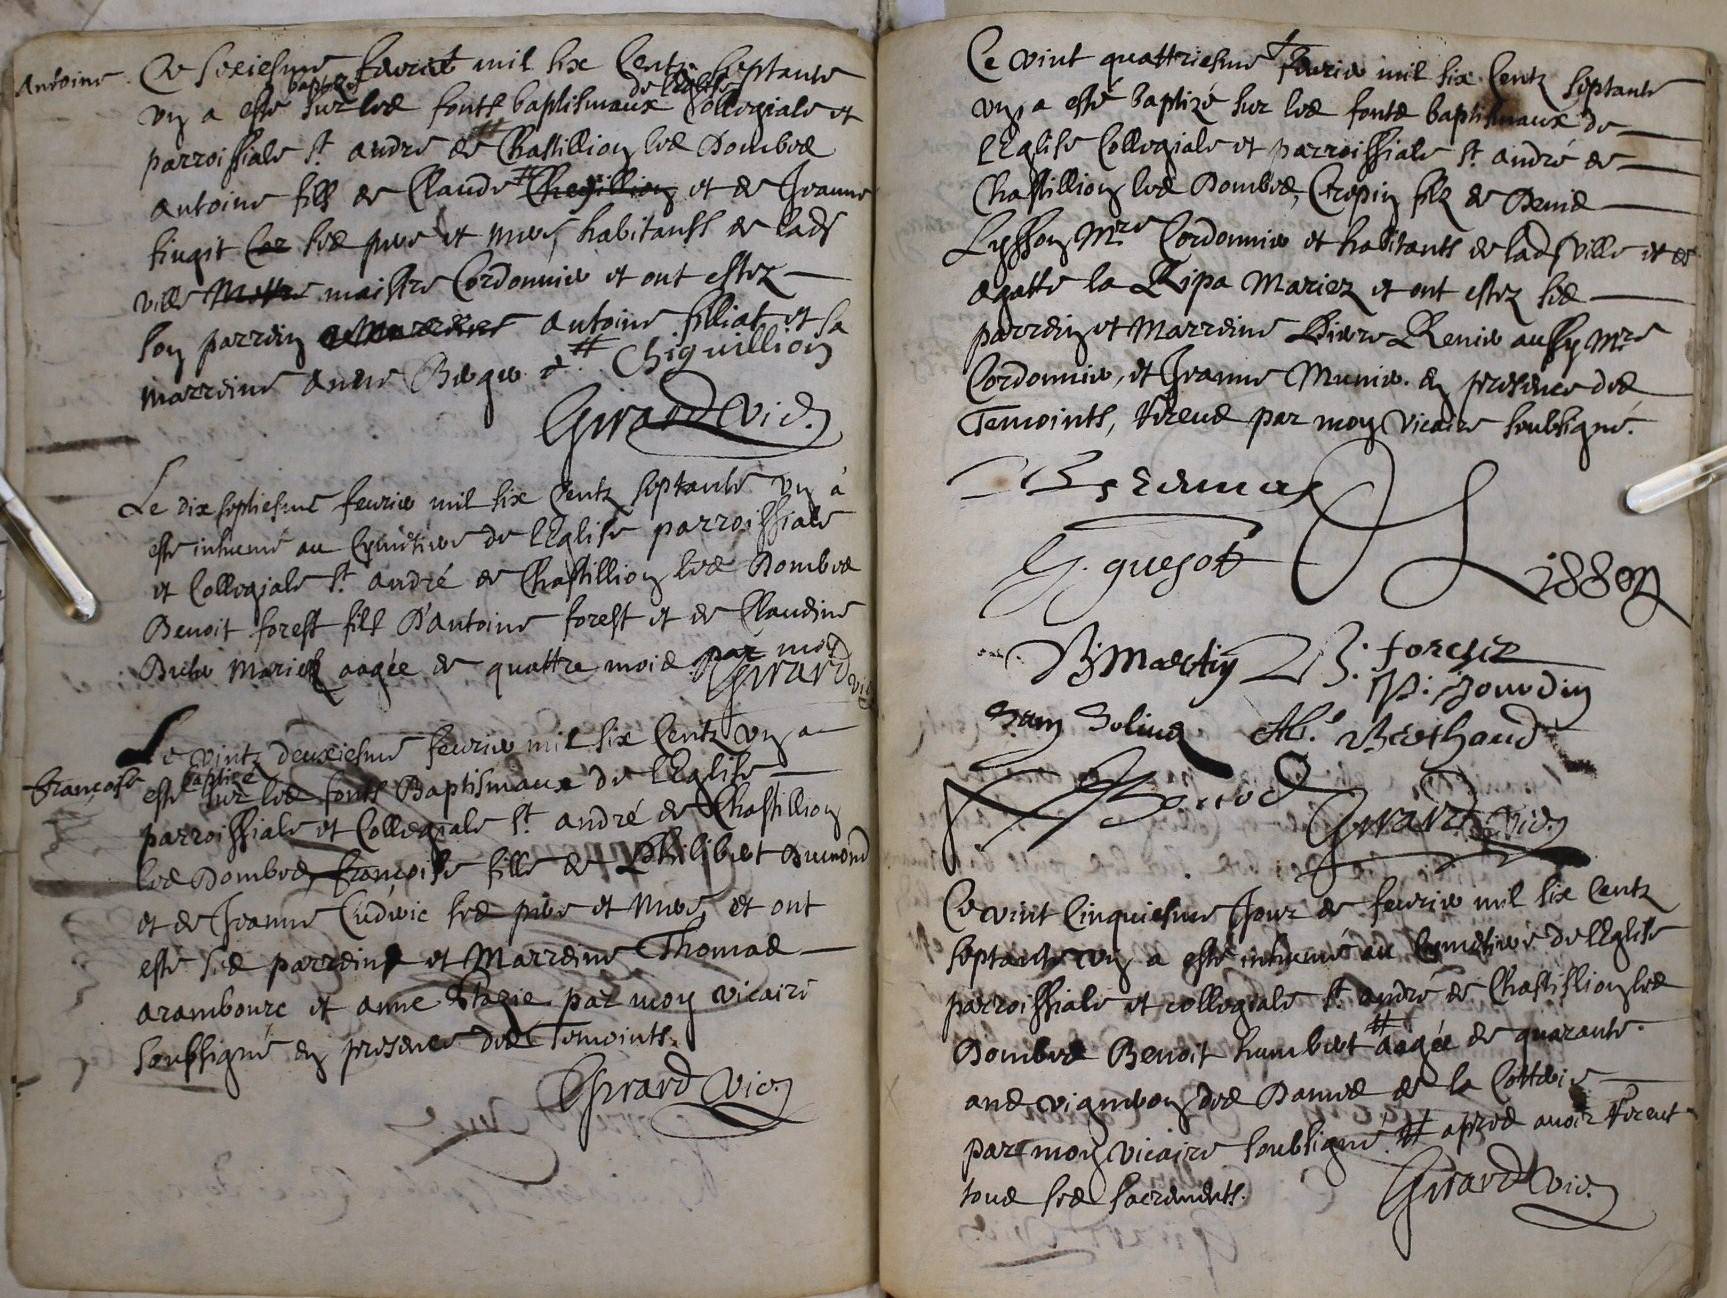 Antoine
Ce seziesme feurier mil six Centz septante
baptizé de l'Eglise
un a esté sur les fonts baptismaux Collegiale et
parroissiale St. andré de Chastillion les Dombes
Antoine fils de Claude # et de Jeanne
singit ses pere et mere, habitants de lad
ville maistre Cordonnier et ont estez
son parrein Antoine filliat et sa
marreine anne Berger. # Chiquillion
Girard vic.
Le dix septiesme feurier mil six Centz septante un à
esté inhumé au Cymetiere de l'Eglise parroissiale
et Collegiale St. andré de Chastillion les Dombes
Benoit forest fils D'antoine forest et de Claudine
Mariez aagée de quattre mois par moy
Girard vic
Francoise
Le vintz deuxiesme feurier mil six Centz un a
baptizé
esté sur les fonts Baptismaux de l'Eglise
parroissiale et Collegiale St. andré de Chastillion
les Dombes, francoise fille de Philibert Dumond
et de Jeanne Ludwic ses pere et mere, et ont
esté ses parrein et Marreine Thomas
arambourc et anne Stagie par moy vicaire
soubsigné en presence des Temoints.
Girard vic.
Ce vint quattriesme feurier mil six Centz septante
un a esté baptizé sur les fonts baptismaux de
l'Eglise Collegiale et parroissiale St. andré de
Chastillion les Dombes, Crepin filz de Denis
Lysson Mre Cordonnier et habitants de lad ville et de
agatte la Ripa Mariez et ont estez ses
parrein et Marreine Pierre Renier aussy Mre
Cordonnier, et Jeanne Munier. en presence des
Temoints, Receus par moy Vicaire soubsigné.
G. guesot
B. foresiz
Martin
P. Jourdin
Sam Solins Ab. Berthaud
Girard vic.
Ce vint Cinquiesme Jour de feurier mil six Centz
septante un a esté inhumé au Cymetiere de l'Eglise
parroissiale et collegiale St. andré de Chastillion les
Dombes Benoit humbert # aagée de quarante
ans vigneron des Dames de la
par moy vicaire soubsigné. # apres auoir Receut
tous ses sacrements.
Girard vic.